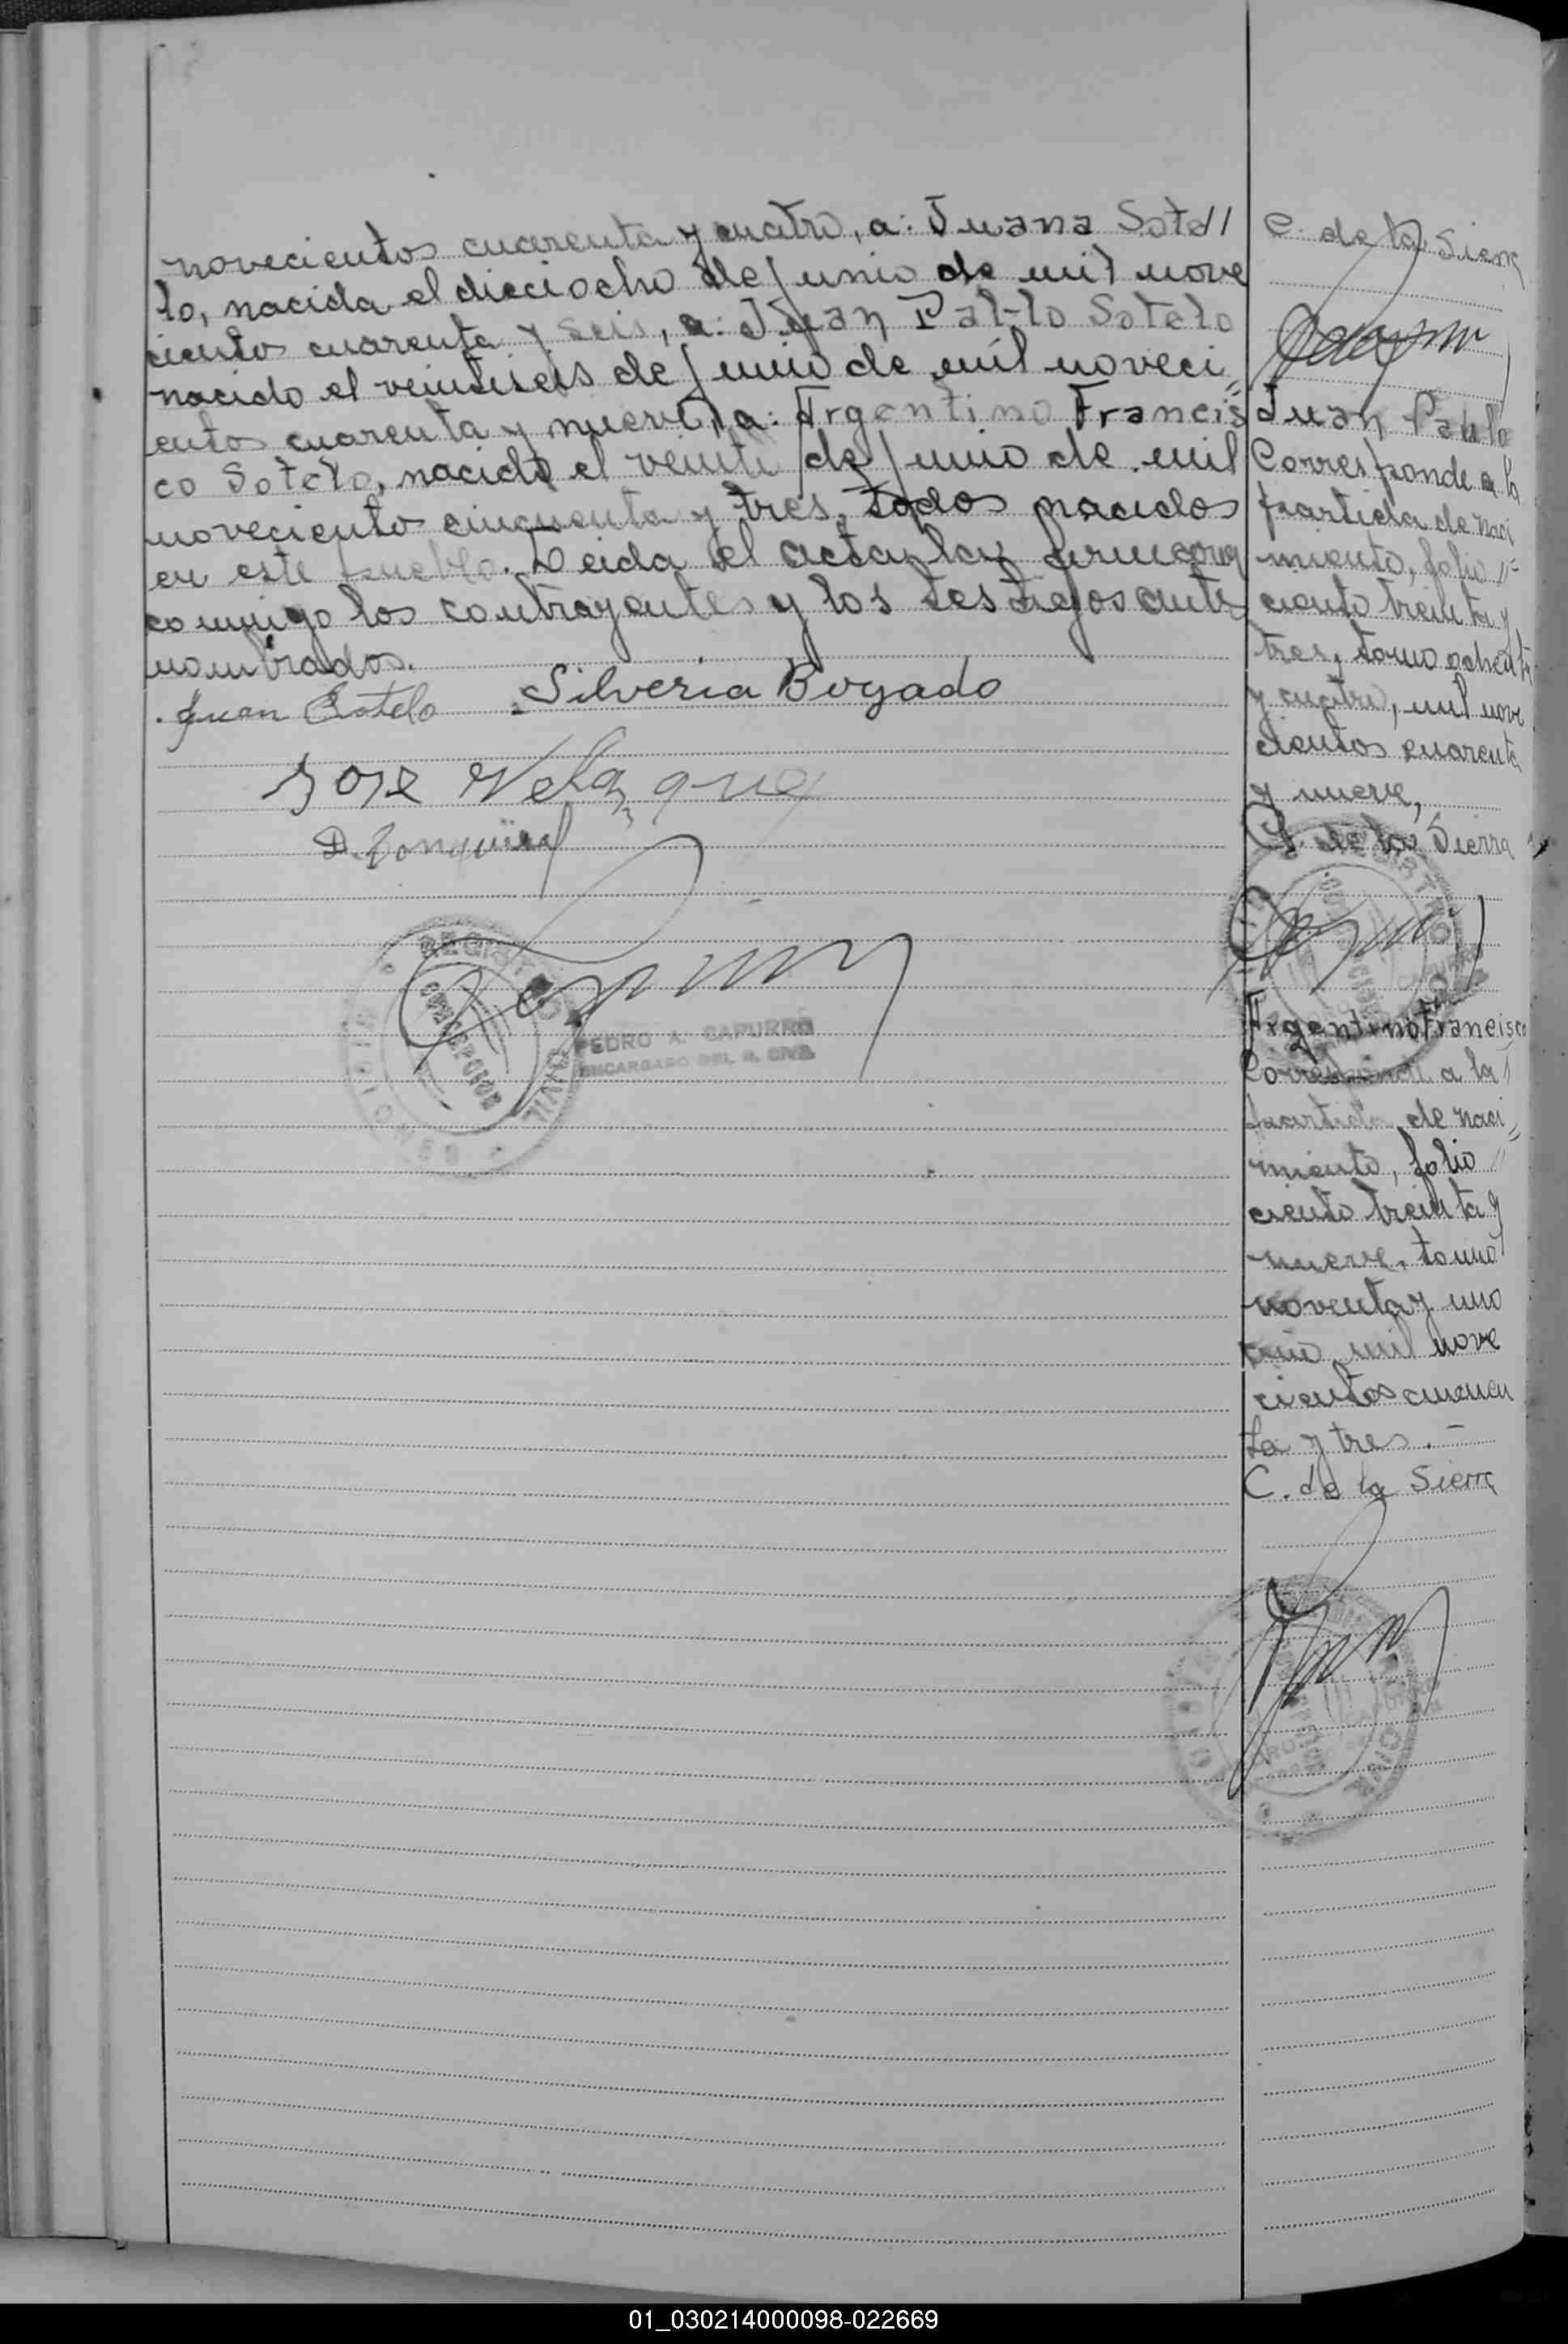 novecientos cuarenta y cuatro, a: Juana Sotel
lo, nacida el dieciocho de junio de mil nove
ciento cuarenta y seis, a: Juan Pablo Sotelo
nacido el veintiseis de junio de mil noveci
entos cuarenta y nueve, a: Argentino Francis
co Sotelo, nacido el veinte de junio de mil
noveciento cincuenta y tres, todos nacidos
en este pueblo. Leida el acta, la firmaron
conmigo los contrayentes y los testigos ante
nombrados.
Juan Sotelo Silveria Bogado
Jose Velazque
REGISTRO CIVIL
PEDRO A. CAPURRO
ENCARGADO DEL R. CIVIL
C. de la Sierra
Juan Pablo
Corresponde a la
partida de naci
miento, folio
ciento treinta y
tres, tomo ochenta
y cuatro, mil nove
cientos cuarenta
y nueve,
C. de la Sierra
Argentino Francisco
Corresponde a la
partida de naci
miento, folio
ciento treinta y
nueve, tomo
noventa y uno
año mil nove
cientos cincuen
ta y tres.-
C. de la Sierra
01_030214000098-022669